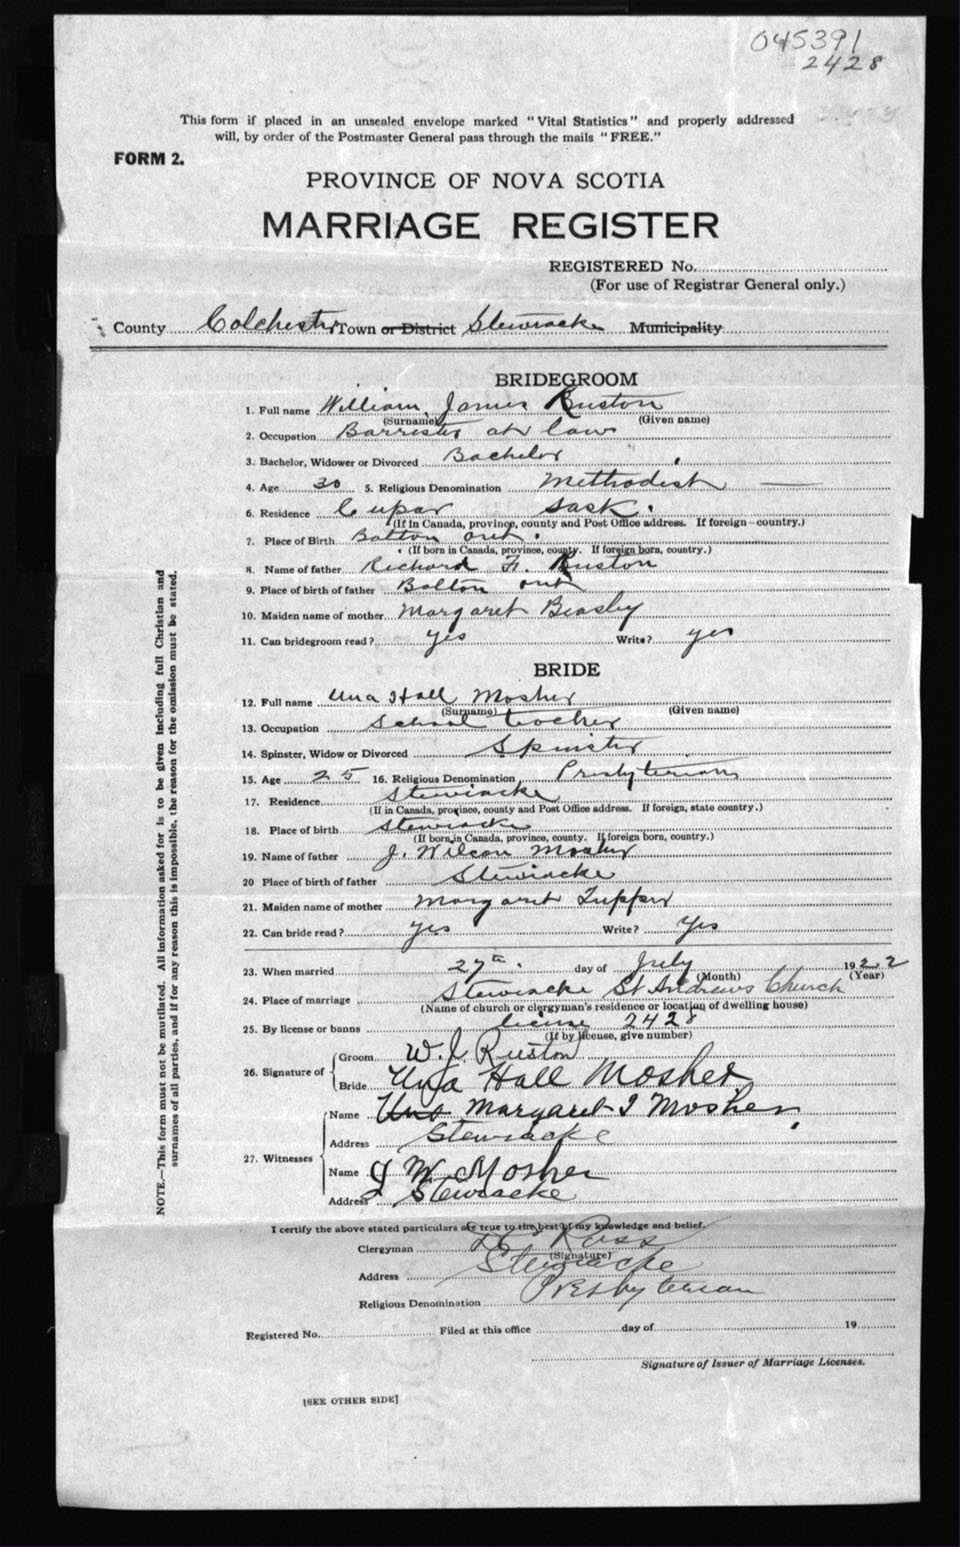 045391
2428
This form if placed in an unsealed envelope marked "Vital Statistics" and properly addressed
will, by order of the Postmaster General pass through the mails "FREE."
FORM 2.
PROVINCE OF NOVA SCOTIA
MARRIAGE REGISTER
REGISTERED No.
(For use of Registrar General only.)
County Colchester Town or District Stewiacke Municipality
BRIDEGROOM
1. Full name William James Ruston
(Surname) (Given name)
2. Occupation Barrister at law
3. Bachelor, Widower or Divorced Bachelor
4. Age 30 5. Religious Denomination Methodist
6. Residence Cupar Sask.
(If in Canada, province, county and Post Office address. If foreign—country.)
7. Place of Birth Bolton Ont.
(If born in Canada, province, county. If foreign born, country.)
8. Name of father Richard F. Ruston
9. Place of birth of father Bolton Ont
10. Maiden name of mother Margaret Beasley
11. Can bridegroom read? yes Write? yes
BRIDE
12. Full name Una Hall Mosher
(Surname) (Given name)
13. Occupation School teacher
14. Spinster, Widow or Divorced Spinster
15. Age 25 16. Religious Denomination Presbyterian
17. Residence Stewiacke
(If in Canada, province, county and Post Office address. If foreign, state country.)
18. Place of birth Stewiacke
(If born in Canada, province, county. If foreign born, country.)
19. Name of father J. Wilson Mosher
20 Place of birth of father Stewiacke
21. Maiden name of mother Margaret Tupper
22. Can bride read? yes Write? Yes
23. When married 27th. day of July 1922
(Month) (Year)
24. Place of marriage Stewiacke St Andrews Church
(Name of church or clergyman's residence or location of dwelling house)
25. By license or banns license 2428
(If by license, give number)
26. Signature of Groom W. J. Ruston
Bride Una Hall Mosher
27. Witnesses Name Una Margaret I Mosher
Address Stewiacke
Name J W Mosher
Address Stewiacke
I certify the above stated particulars are true to the best of my knowledge and belief.
Clergyman Ross
(Signature)
Address Stewiacke
Religious Denomination Presbyterian
Registered No. Filed at this office day of 19
Signature of Issuer of Marriage Licenses.
[SEE OTHER SIDE]
NOTE.—This form must not be mutilated. All information asked for is to be given including full Christian and
surnames of all parties, and if for any reason this is impossible, the reason for the omission must be stated.